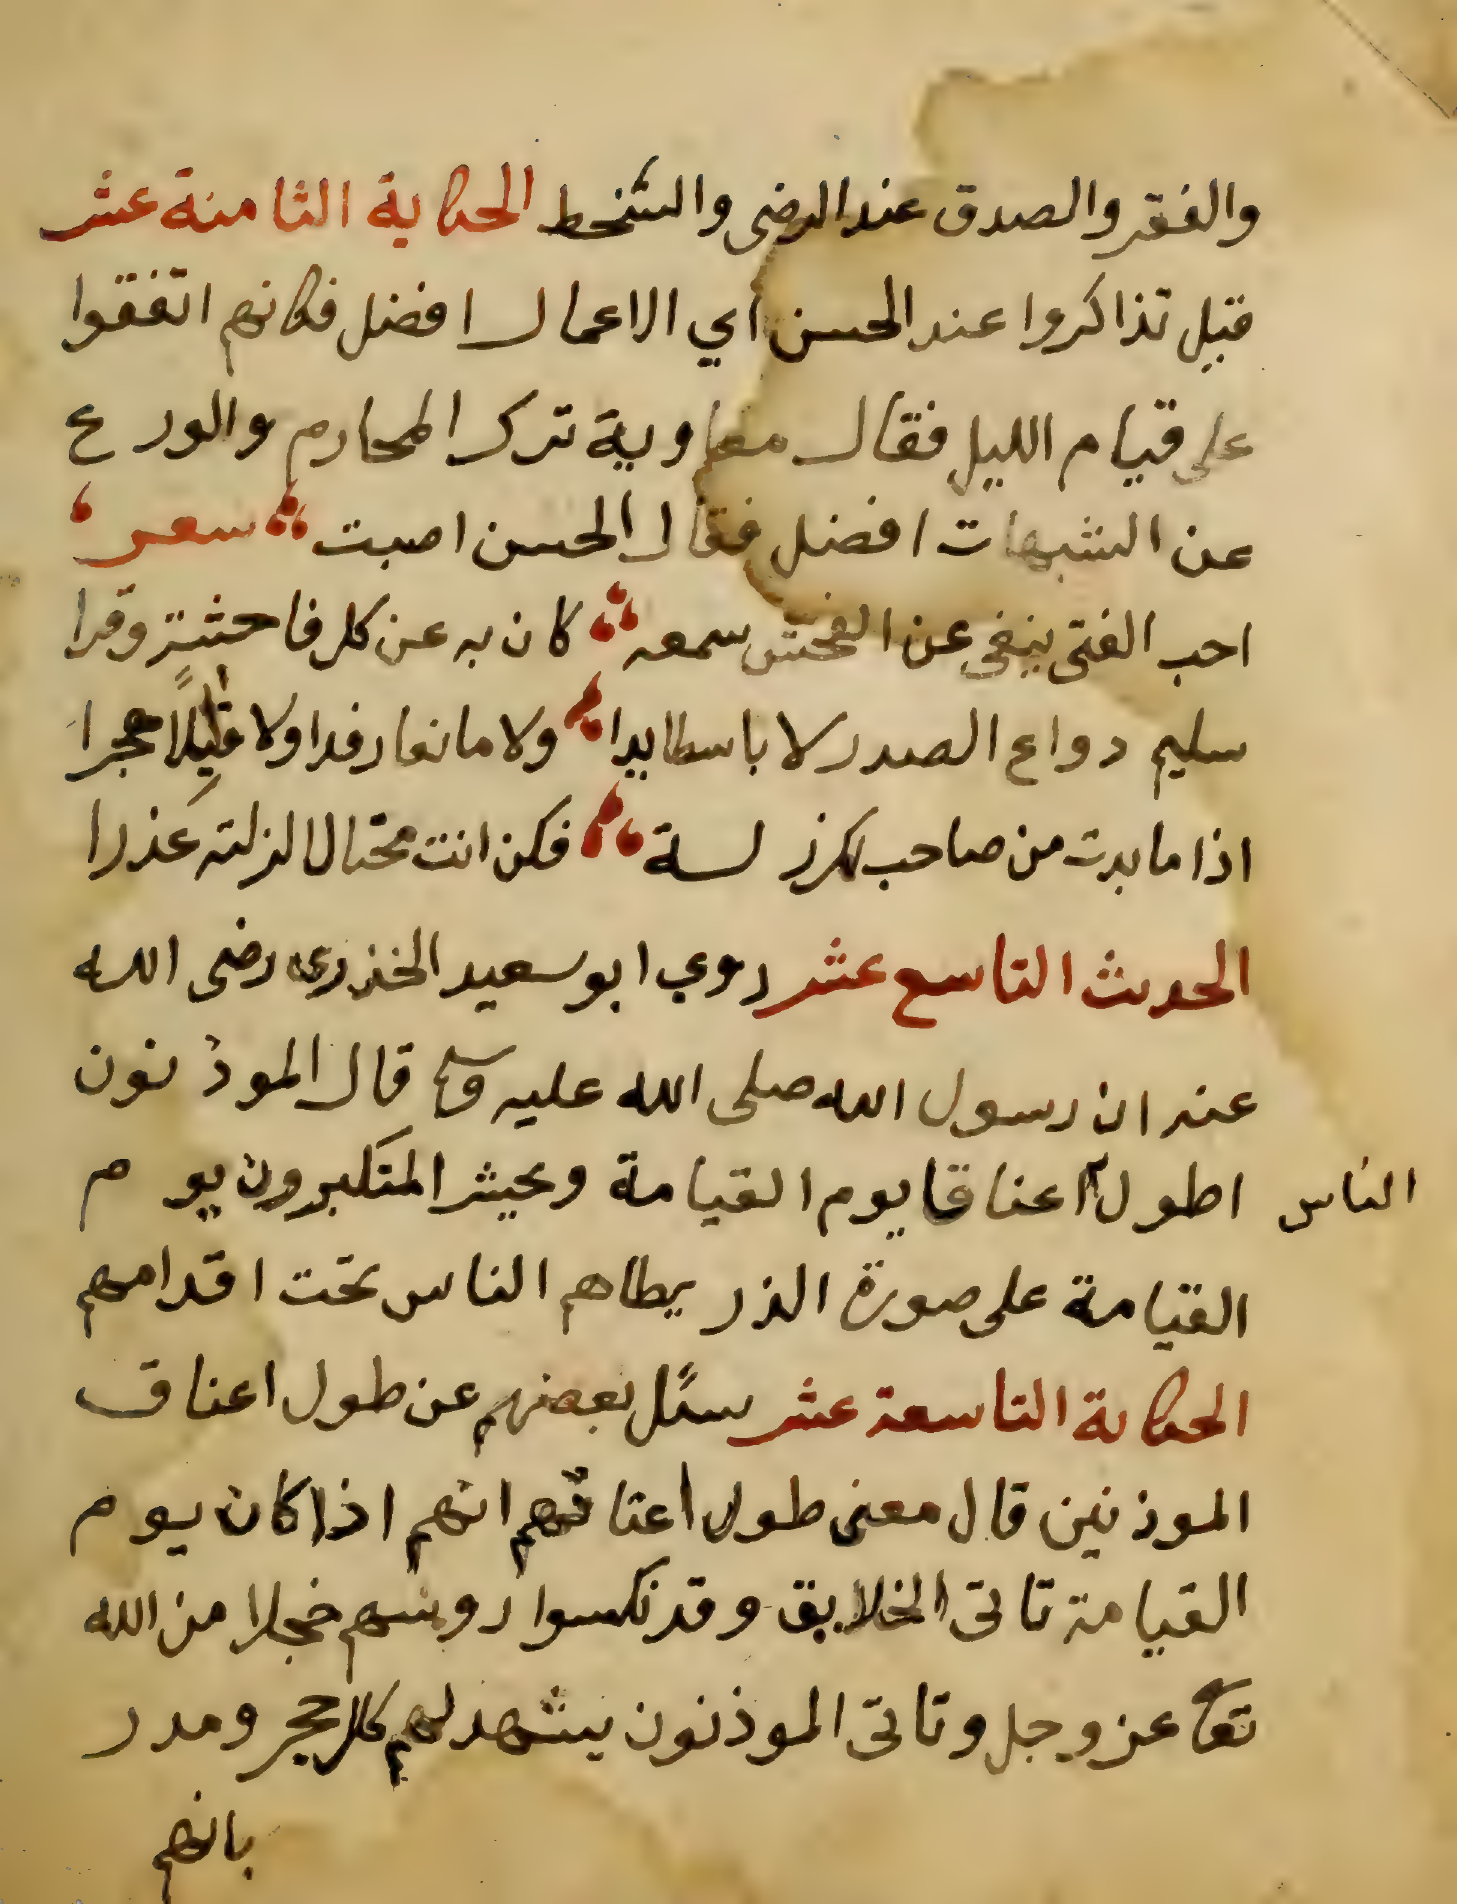 والفقر والصدق عند الرضى والسخط الحكاية الثامنة عشر
قيل تذاكروا عند الحسن أي الاعمال افضل فكانهم اتفقوا
على قيام الليل فقال معاوية ترك المحارم والورع
عن الشبهات افضل فقال الحسن اصبت شعر
احب الفتى ينفى عن الفحش سمعه كان به عن كل فاحشة وقرا
سليم دواع الصدر لا باسطا يدا ولا مانعا رفدا ولا قائلاً هجرا
اذا ما بدت من صاحب لك زلسة فكن انت محتالا لزلته عذرا
الحديث التاسع عشر روي ابو سعيد الخذري رضى الله
عنه ان رسول الله صلى الله عليه وسلم قال الموذنون
اطول اعناقا يوم القيامة ويحشر المتكبرون يوم
الناس
القيامة على صورة الذر يطاهم الناس تحت اقدامهم
الحكاية التاسعة عشر سئل بعضهم عن طول اعناق
الموذنين قال معنى طول اعناقهم انهم اذا كان يوم
القيامة تاتى الخلايق وقد نكسوا روسهم خجلا من الله
تعا عز وجل وتاتى الموذنون يشهد لهم كل حجر ومدر
بانهم